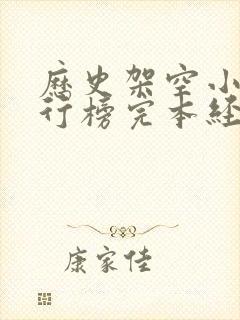 歷史架空小
行榜完本经
康家佳